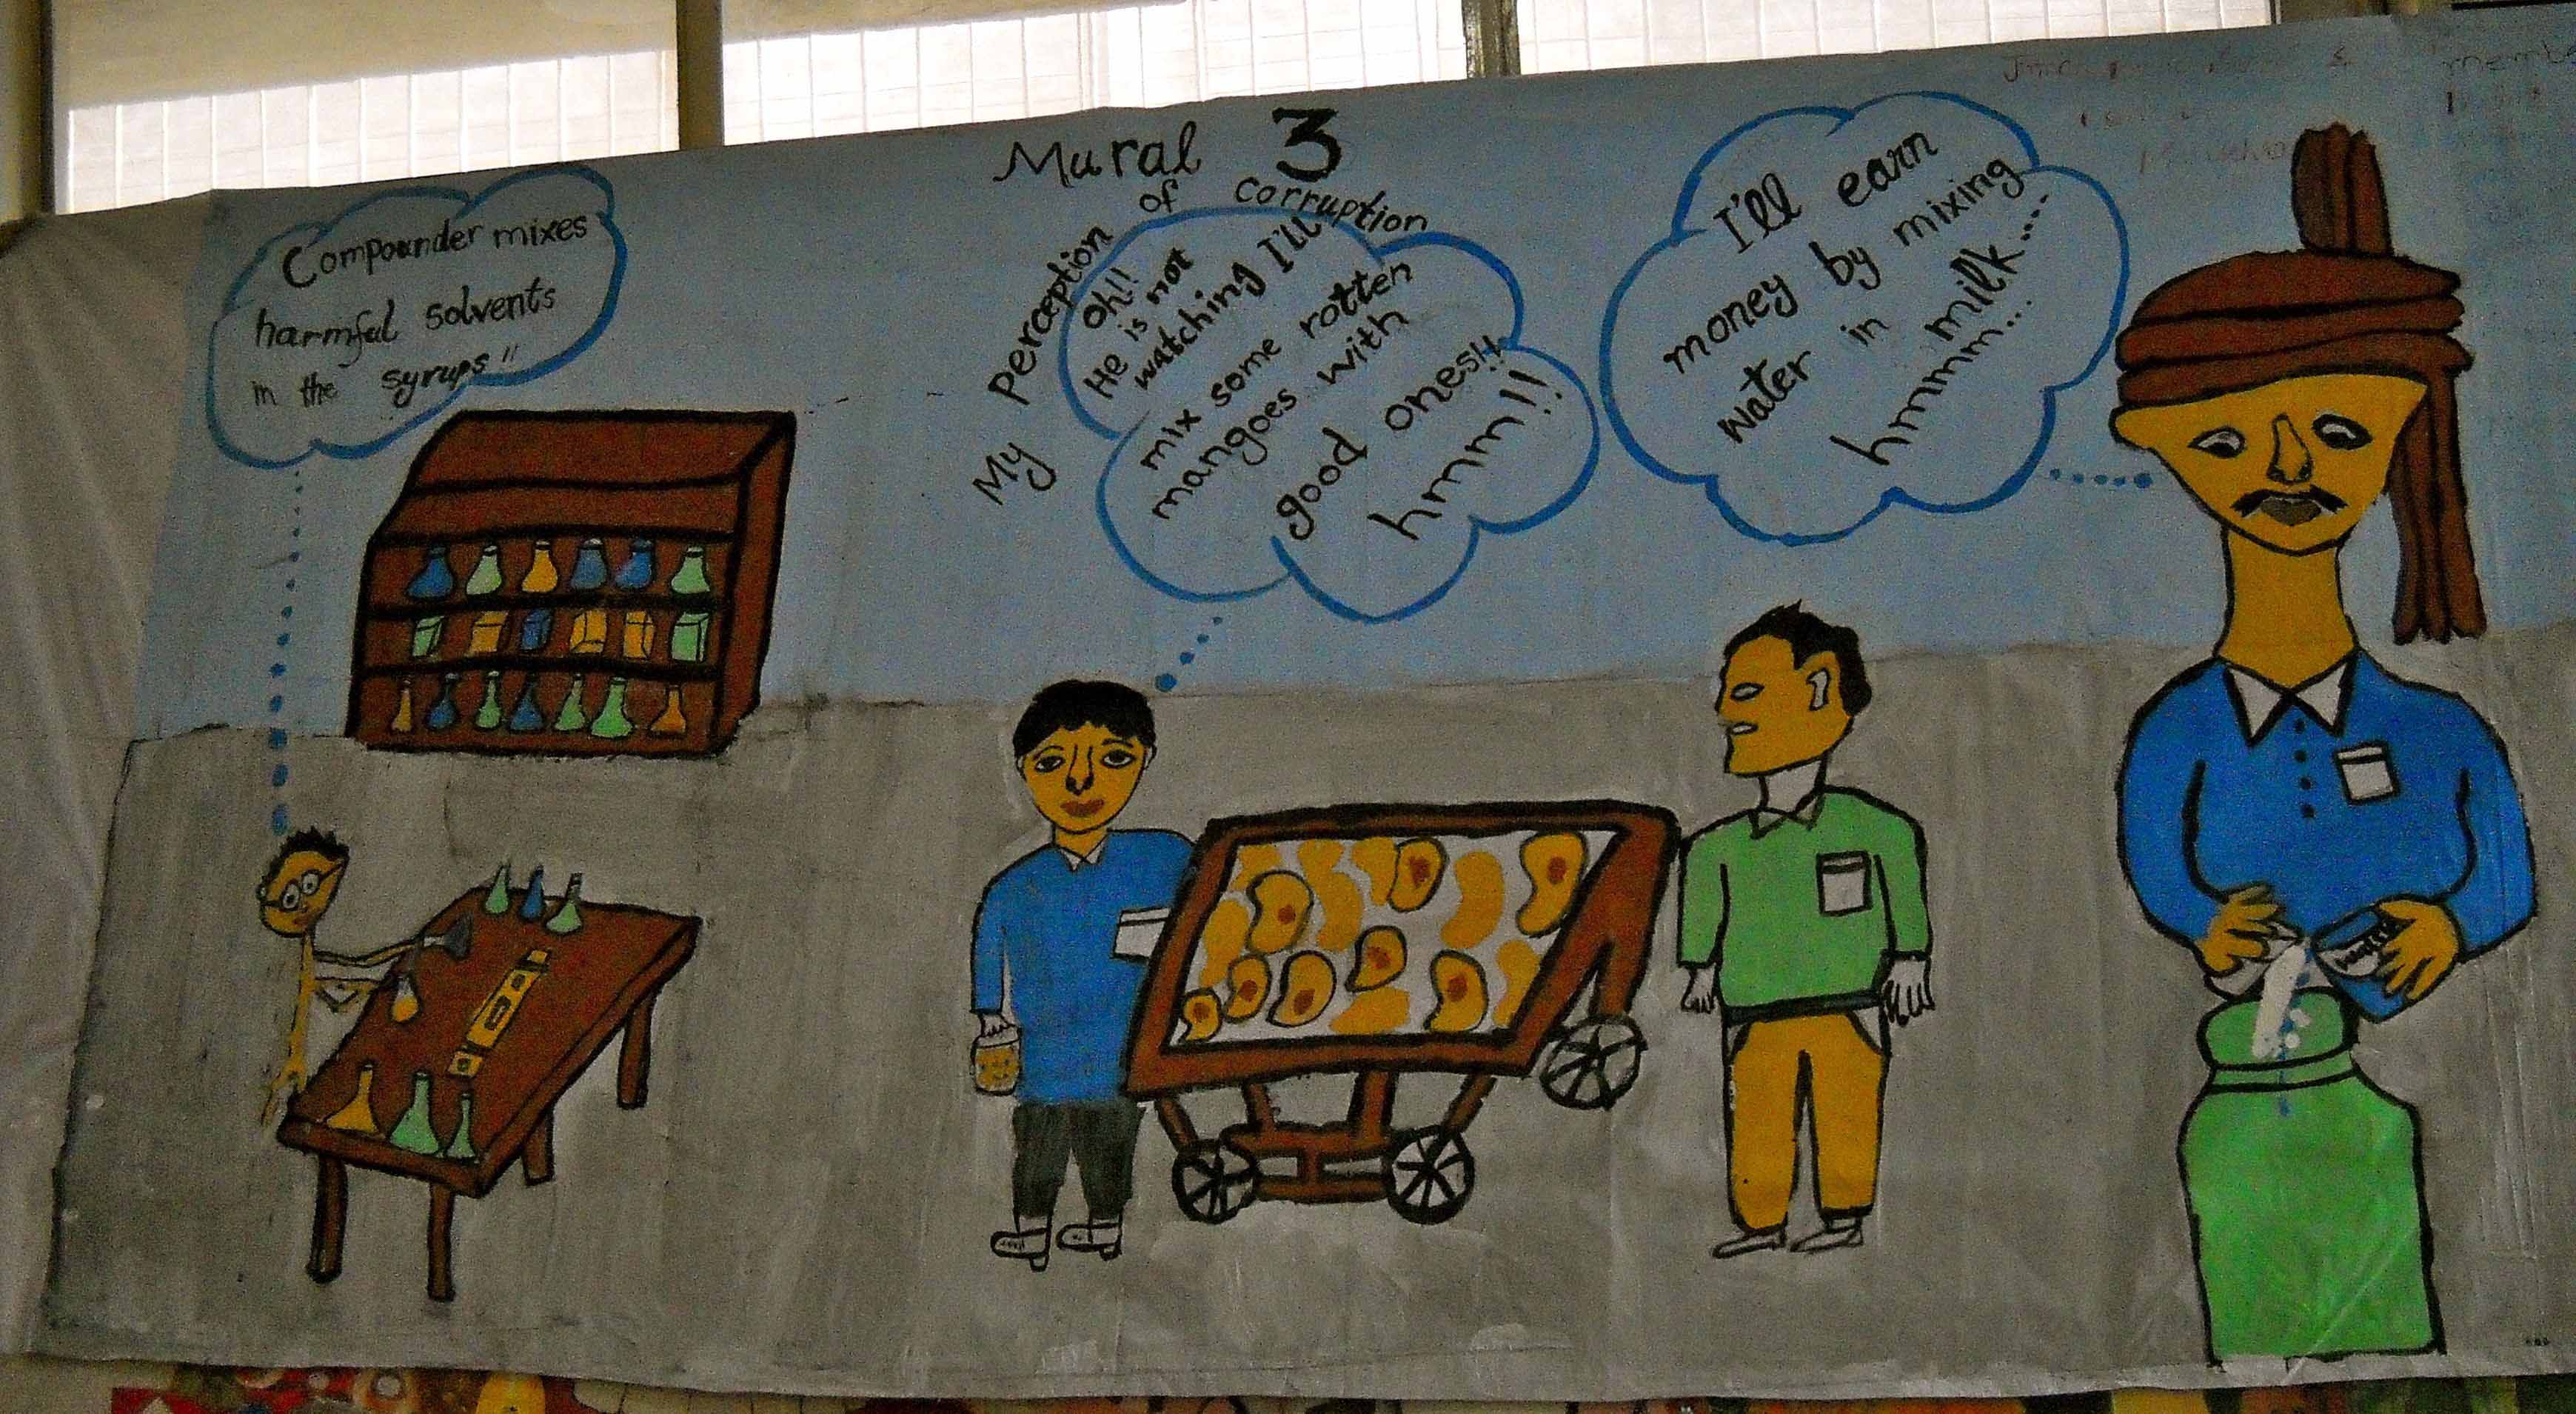 Mural 3
My Perception of Corruption
Compounder mixes
harmful solvents
in the syrups"
Oh!!
He is not
watching I'll
mix some rotten
mangoes with
good ones!!
hmm!!
I'll earn
money by mixing
water in milk....
hmmm...